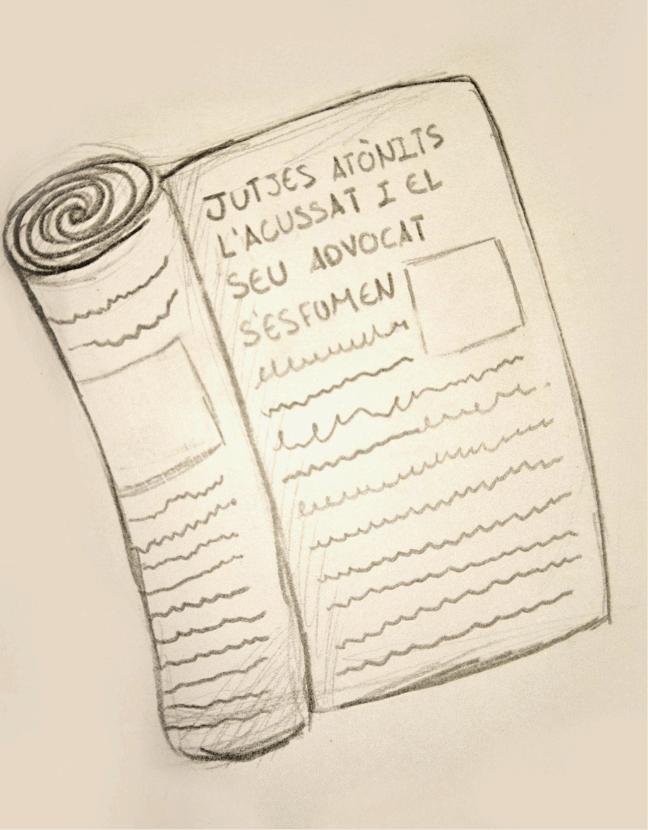 JUTJES ATÒNITS
L'ACUSSAT I EL
SEU ADVOCAT
S'ESFUMEN